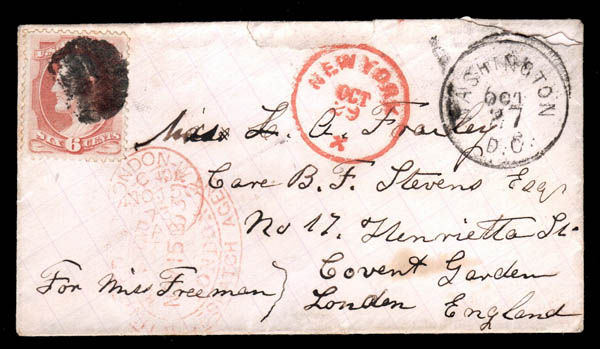 SIX 6 CENTS
NEW YORK
OCT
29
WASHINGTON
OCT
27
D.C.
Miss L. A. Fraeley
Care B. F. Stevens Esqr
No 17. Henrietta St.
Covent Garden
London England
For Miss Freeman}
LONDON